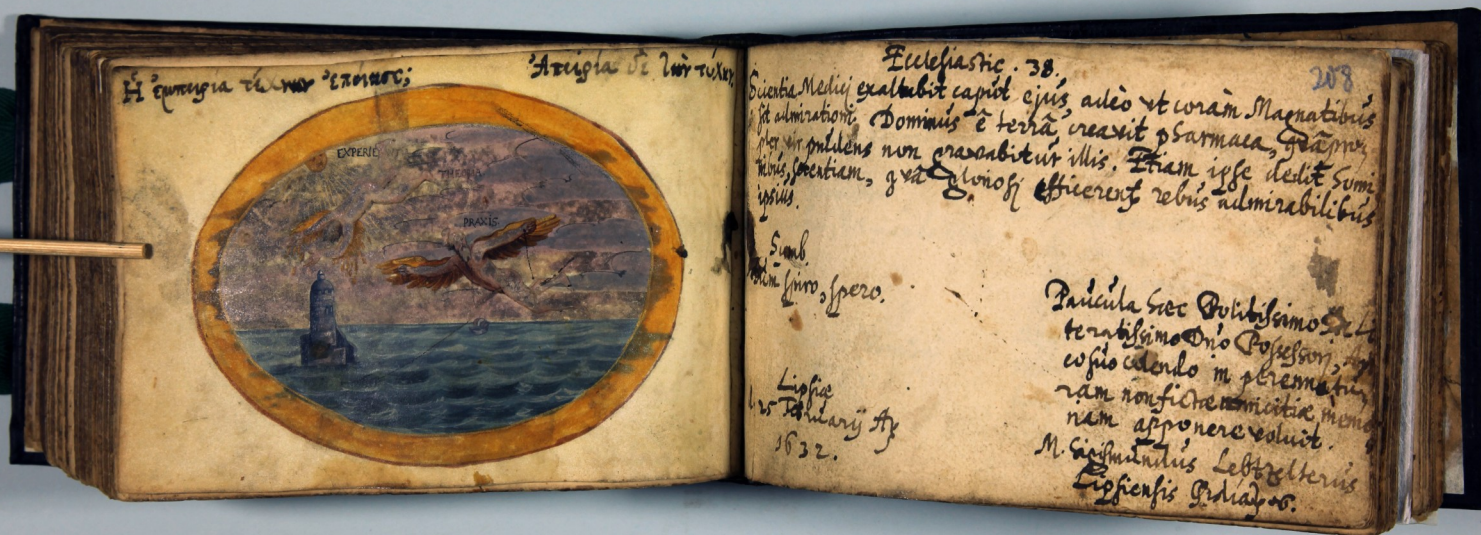 Ἡ ἐμπειρία τέχνην ἐποίησε;
Ἀπειρία δὲ τύχην.
EXPERIE
THEORIA
PRAXIS
Ecclesiastic. 38.
208
Scientia Medici exaltabit caput ejus, adeò ut coràm Magnatibus
sit admirationi. Dominus è terrâ creavit pharmaca,
vir prudens non gravabitur illis. Etiam ipse dedit homi
nibus, scientiam, qvâ gloriosi efficerent rebus admirabilibus
ipsius.
Simb.
Dum spiro, spero.
Paucula haec Politissimo
teratissimo Dno Possessori,
cosuo edendo in perennaturam
ram non fictae amicitiae memo
nam apponere voluit.
M. Sigismundus Lebtzelterus
Lipsiensis
Lipsiae
25 Februarij
1632.